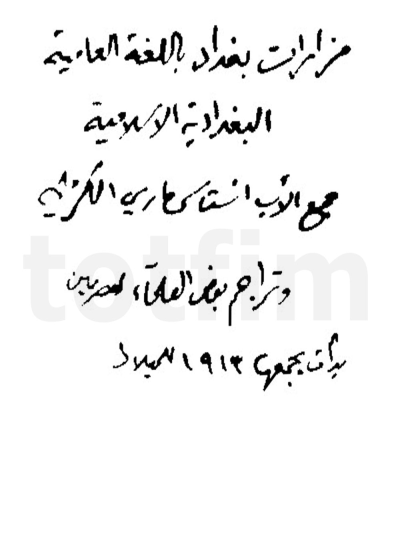 مزارات بغداد باللغة العامية
البغدادية الاسلامية
جمع الأب انستاس ماري الكرملي
وتراجم بعض العلماء المعاصرين
بدأت بجمعها ١٩١٣ للميلاد
totfim